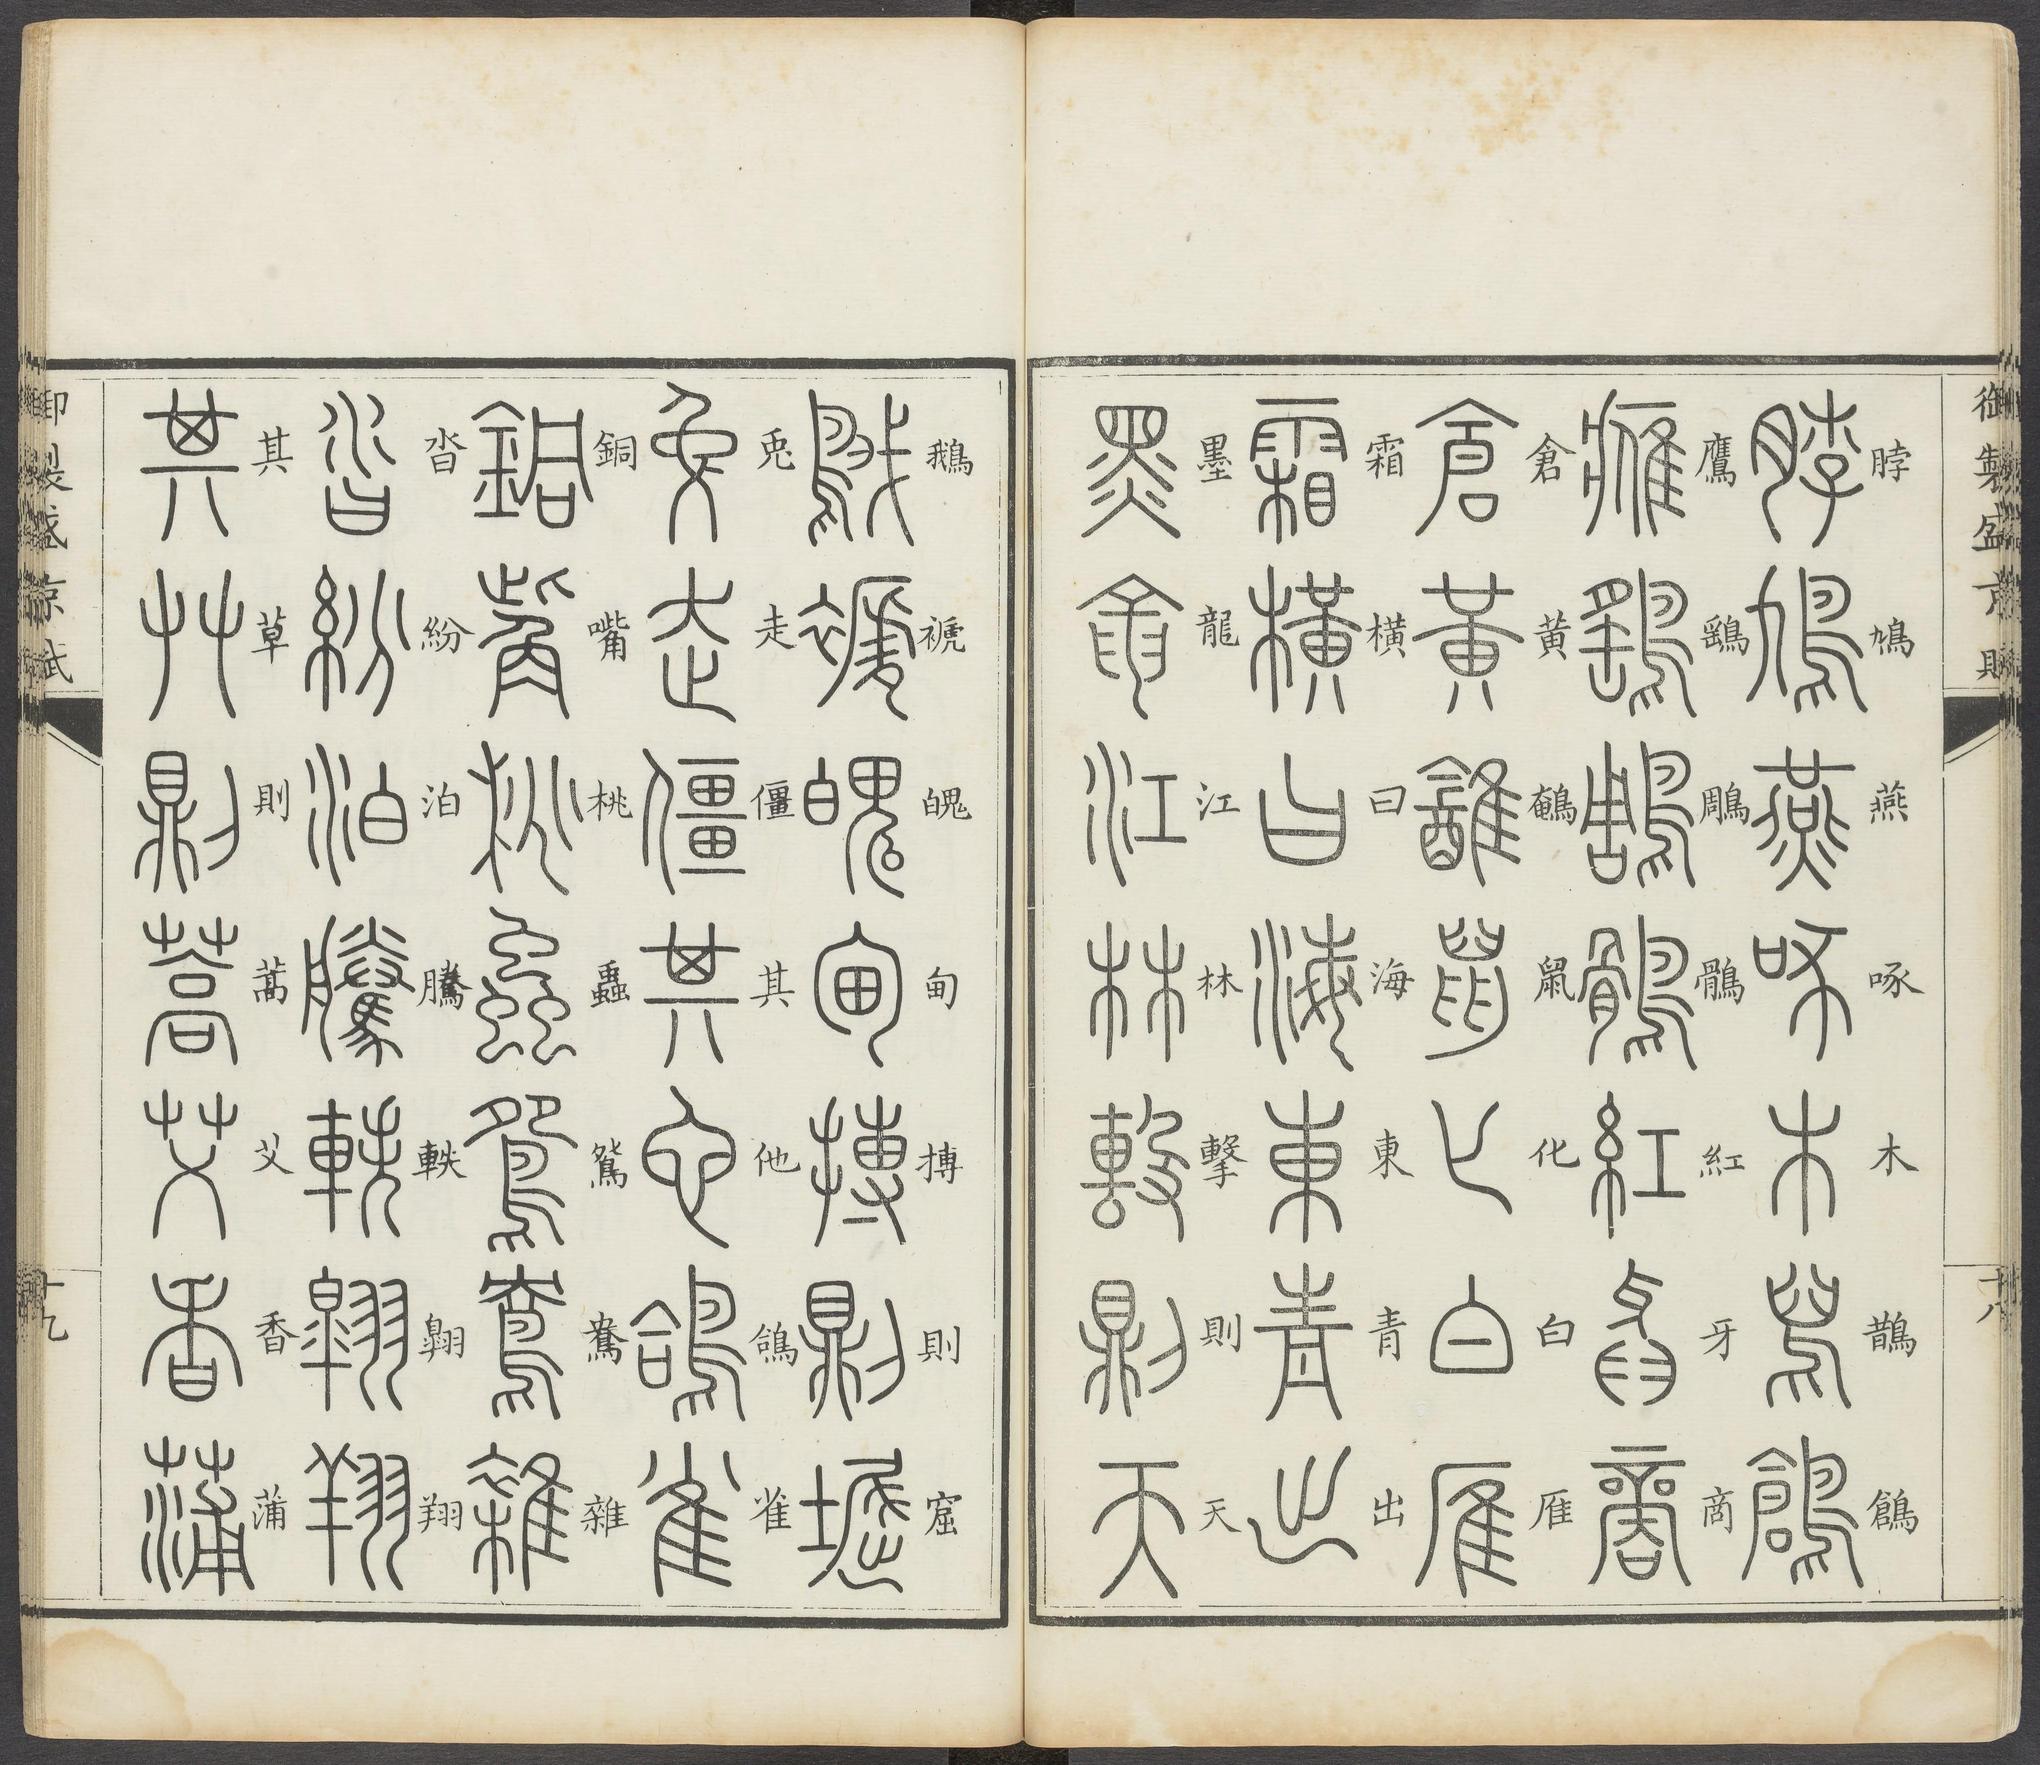 御製盛京賦
十八
脖鳩燕啄木鵲鶬
鷹鷂鵰鶻紅牙商
倉黃鵪鼠化白雁
霜橫曰海東青出
墨龍江林擊則天
鵝褫魄甸摶則窟
兎走僵其他鴿雀
銅嘴桃蟲鴛鴦雜
沓紛泊騰軼翱翔
其草則蒿艾香蒲
御製盛京賦
十九